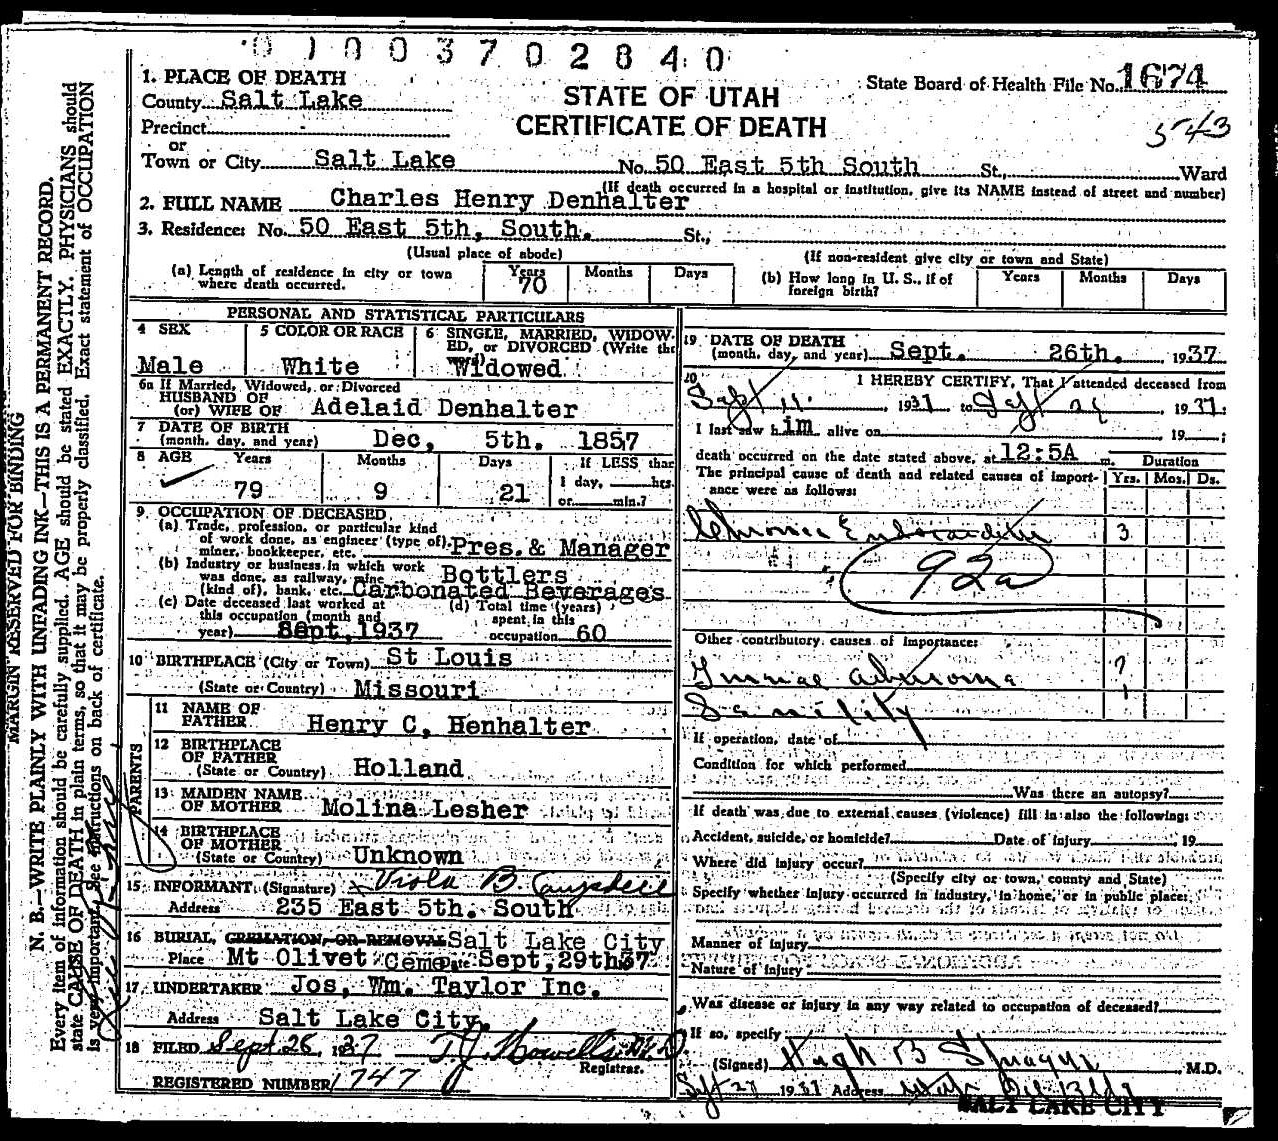 0100370284 0
1. PLACE OF DEATH
County Salt Lake
STATE OF UTAH
CERTIFICATE OF DEATH
State Board of Health File No. 1674
543
Precinct
or
Town or City Salt Lake No. 50 East 5th South St., Ward
(If death occurred in a hospital or institution, give its NAME instead of street and number)
2. FULL NAME Charles Henry Denhalter
3. Residence: No. 50 East 5th, South. St.,
(Usual place of abode) (If non-resident give city or town and State)
(a) Length of residence in city or town where death occurred. Years 70 Months Days
(b) How long in U. S., if of foreign birth? Years Months Days
PERSONAL AND STATISTICAL PARTICULARS
4 SEX
Male
5 COLOR OR RACE
White
6 SINGLE, MARRIED, WIDOW-
ED, or DIVORCED (Write the
word)
Widowed
6a If Married, Widowed, or Divorced
HUSBAND OF
(or) WIFE OF Adelaid Denhalter
7 DATE OF BIRTH
(month, day, and year) Dec, 5th. 1857
8 AGE Years Months Days If LESS than
79 9 21 1 day, hrs.
or min.?
9. OCCUPATION OF DECEASED
(a) Trade, profession, or particular kind
of work done, as engineer (type of),
miner, bookkeeper, etc. Pres. & Manager
(b) Industry or business in which work
was done, as railway, mine
(kind of), bank, etc. Bottlers
Carbonated Beverages
(c) Date deceased last worked at
this occupation (month and
year) Sept, 1937
(d) Total time (years)
spent in this
occupation 60
10 BIRTHPLACE (City or Town) St Louis
(State or Country) Missouri
PARENTS
11 NAME OF
FATHER Henry C, Henhalter
12 BIRTHPLACE
OF FATHER
(State or Country) Holland
13 MAIDEN NAME
OF MOTHER Molina Lesher
14 BIRTHPLACE
OF MOTHER
(State or Country) Unknown
15 INFORMANT (Signature) Viola B Campbell
Address 235 East 5th. South
16 BURIAL, CREMATION, OR REMOVAL Salt Lake City
Place Mt Olivet Ceme Date Sept, 29th 37
17 UNDERTAKER Jos, Wm. Taylor Inc.
Address Salt Lake City.
18 FILED Sept. 26, 1937 T.J. Howells M.D.
Registrar.
REGISTERED NUMBER 1747
19 DATE OF DEATH
(month, day, and year) Sept. 26th. , 1937
20 I HEREBY CERTIFY, That I attended deceased from
Sept 11. , 1937 to Sept , 1937:
I last saw him alive on , 19 ;
death occurred on the date stated above, at 12:5A m. Duration
The principal cause of death and related causes of import-
ance were as follows: Yrs. Mos. Ds.
Chronic Endocarditis 3
92a
Other contributory causes of importance:
?
Senility
If operation, date of
Condition for which performed
Was there an autopsy?
If death was due to external causes (violence) fill in also the following:
Accident, suicide, or homicide? Date of injury , 19
Where did injury occur?
(Specify city or town, county and State)
Specify whether injury occurred in industry, in home, or in public place:
Manner of injury
Nature of injury
Was disease or injury in any way related to occupation of deceased?
If so, specify
(Signed) Hugh B Sprague M.D.
Sept 27 1937 Address
SALT LAKE CITY
MARGIN RESERVED FOR BINDING
N. B.—WRITE PLAINLY WITH UNFADING INK—THIS IS A PERMANENT RECORD.
Every item of information should be carefully supplied. AGE should be stated EXACTLY. PHYSICIANS should
state CAUSE OF DEATH in plain terms, so that it may be properly classified. Exact statement of OCCUPATION
is very important. See instructions on back of certificate.